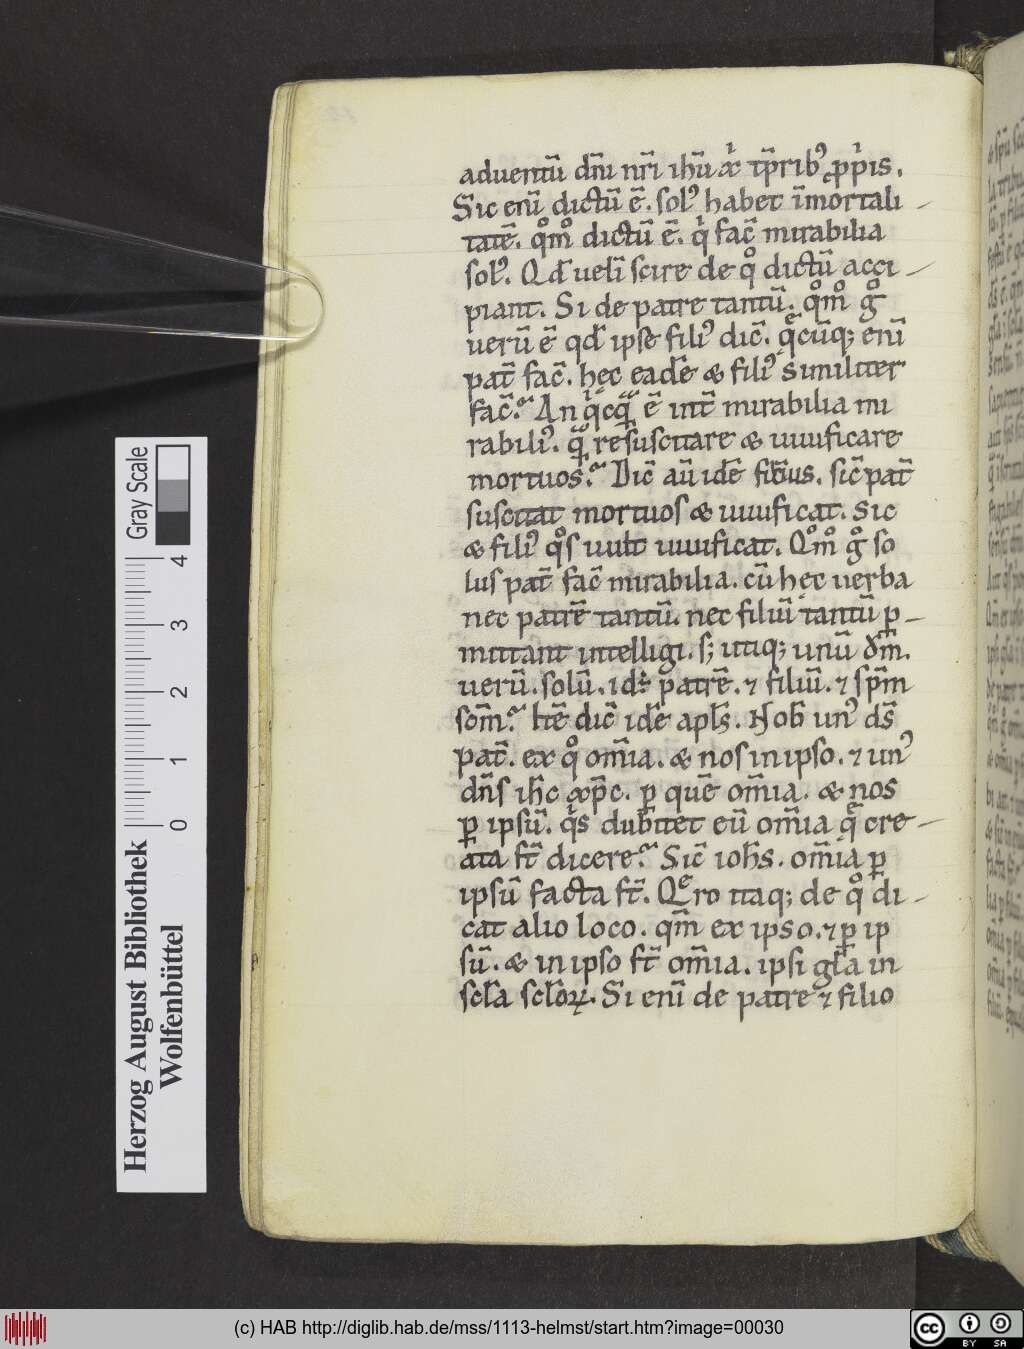 aduentū dn̄i nr̄i ih̄u xp̄i tp̄rib᷒ ꝓpͥis.
Sic eni̅ dictū ē. sol᷒ habet īmortali
tatē. qͦmͦ dictū ē. qͥ fac̄ mirabilia
sol᷒. Qd̄ ueli̅ scire de qͦ dictū acci
piant. Si de patre tantū. qͦmͦ gͦ
uerū ē qd̄ ipse fili᷒ dic̄. qͣcūq; eni̅
pat̄ fac̄. hęc eadē & fili᷒ similiter
fac̄. An qͥcqͣ ē int̄ mirabilia mi
rabili᷒. qͣ resuscitare & uiuificare
mortuos. Dic̄ au̅ idē filius. sic̄ pat̄
suscitat mortuos & uiuificat. sic
& fili᷒ qͦs uult uiuificat. Qͦmͦ gͦ so
lus pat̄ fac̄ mirabilia. cū hęc uerba
nec patrē tantū. nec filiū tantū ꝑ
mittant intelligi. s; utiq; unū dm̄.
uerū. solū. id ÷ patrē. ⁊ filiū. ⁊ sp̄m
scm̄. Itē dic̄ idē apl̄s. Nob̄ un᷒ ds̄
pat̄. ex qͦ om̄ia. & nos in ipso. ⁊ un᷒
dn̄s ih̄c xp̄c. ꝑ quē om̄ia. & nos
ꝑ ipsū. qͥs dubitet eū om̄ia qͣ cre
ata st̄ dicere. Sic̄ ioh̄s. om̄ia ꝑ
ipsū facta st̄. Qęro itaq; de qͦ di
cat alio loco. qm̄ ex ipso. ⁊ ꝑ ip
sū. & in ipso st̄ om̄ia. ipsi gl̄a in
scl̄a scl̄oꝝ. Si eni̅ de patre ⁊ filio
Gray Scale
0 1 2 3 4
Herzog August Bibliothek
Wolfenbüttel
(c) HAB http://diglib.hab.de/mss/1113-helmst/start.htm?image=00030
cc BY SA